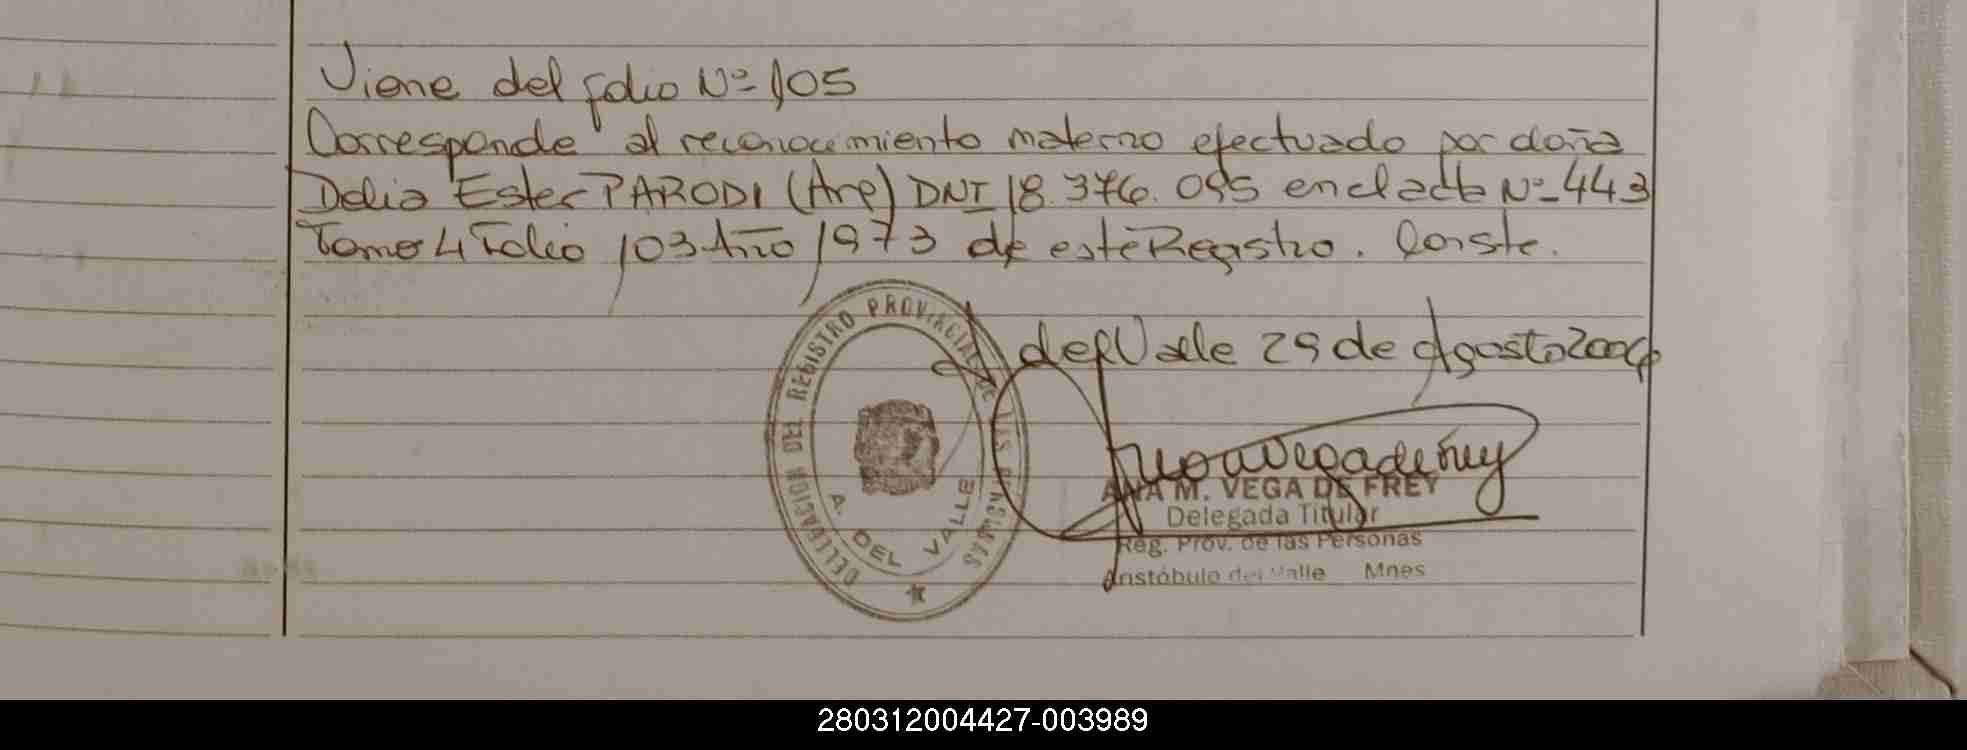 Viene del folio Nº 105
Corresponde al reconocimiento materno efectuado por doña
Delia Ester PARODI (Arg) DNI 18.376.095 en el acta Nº 443
Tomo 4 Folio 103 Año 1973 de este Registro. Conste.
A del Valle 29 de Agosto 2006
DELEGACION DEL REGISTRO PROVINCIAL DE LAS PERSONAS
A. DEL VALLE
ANA M. VEGA DE FREY
Delegada Titular
Reg. Prov. de las Personas
Aristóbulo del Valle Mnes
280312004427-003989